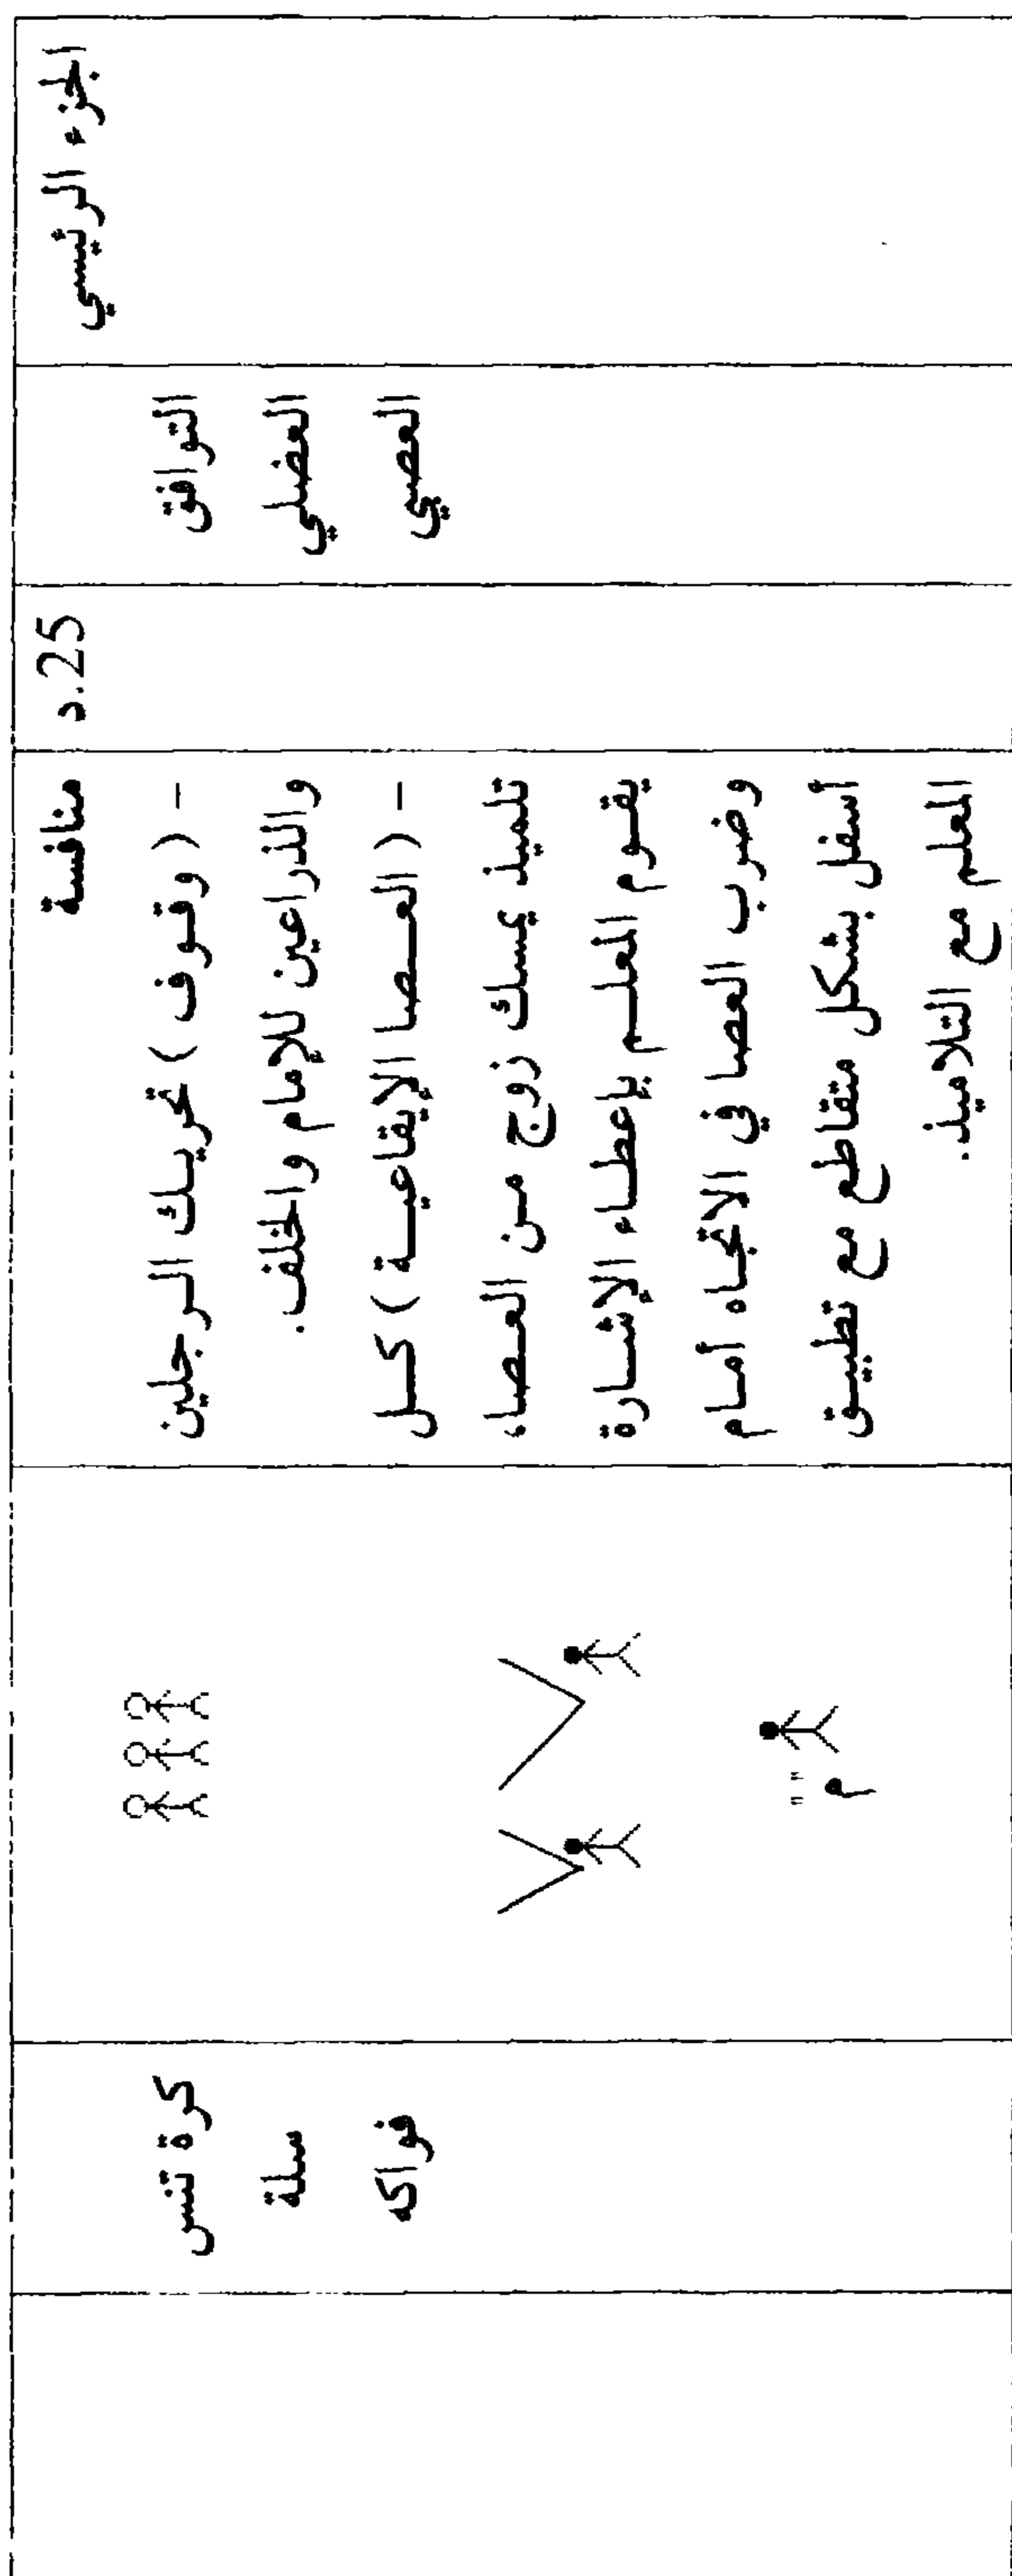 الجزء الرئيسي
التوافق
العضلي
العصبي
25.د
منافسة
- ( وقوف ) تحريك الرجلين
والذراعين للإمام والخلف.
- ( العصا الإيقاعية ) كل
تلميذ يمسك زوج من العصا،
يقوم المعلم بإعطاء الإشارة
وضرب العصا في الاتجاه أمام
أسفل بشكل متقاطع مع تطبيق
المعلم مع التلاميذ.
" م "
كرة تنس
سلة
فواكه